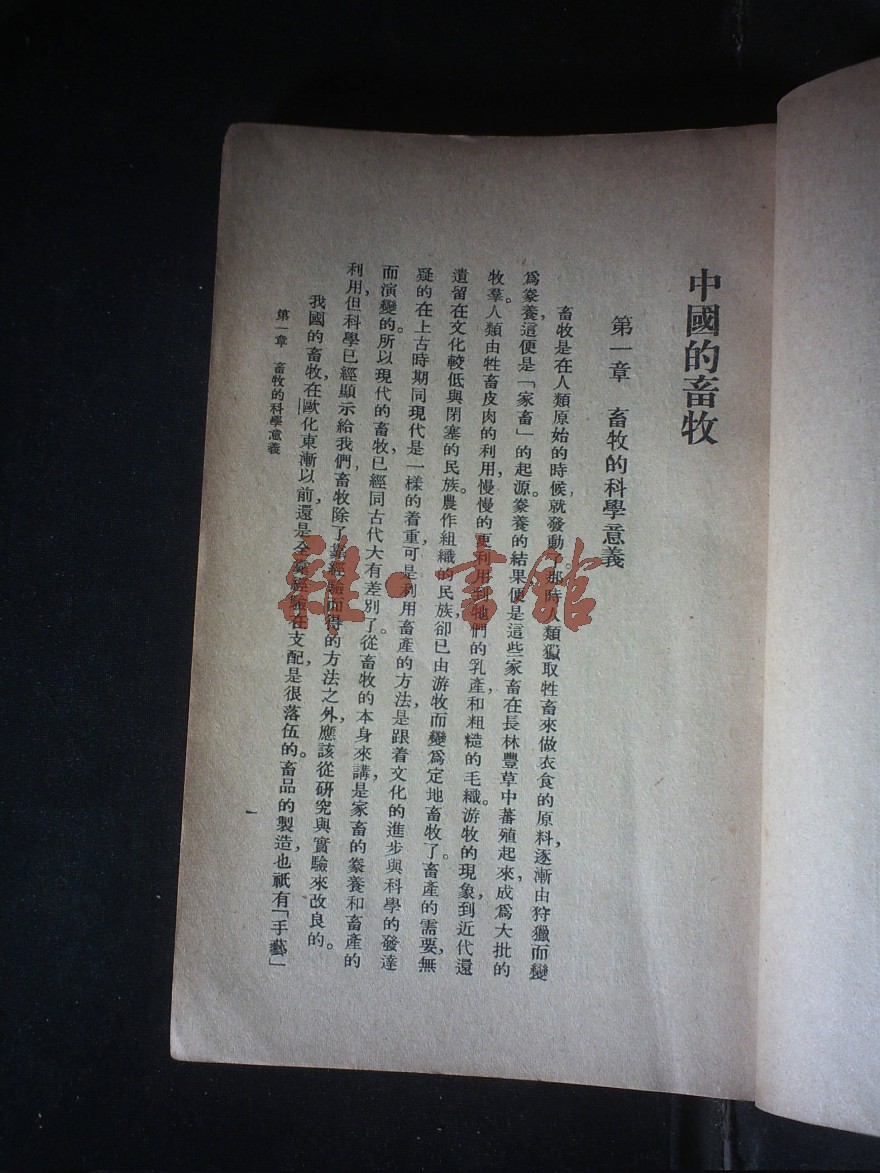 中國的畜牧
第一章 畜牧的科學意義
畜牧是在人類原始的時候，就發動了。那時人類獵取牲畜來做衣食的原料，逐漸由狩獵而變
爲豢養，這便是「家畜」的起源。豢養的結果，便是這些家畜在長林豐草中蕃殖起來，成爲大批的
牧羣。人類由牲畜皮肉的利用，慢慢的更利用到牠們的乳產和粗糙的毛織。游牧的現象，到近代還
遺留在文化較低與閉塞的民族。農作組織的民族，卻已由游牧而變爲定地畜牧了。畜產的需要，無
疑的在上古時期同現代是一樣的着重，可是利用畜產的方法，是跟着文化的進步與科學的發達
而演變的。所以現代的畜牧，已經同古代大有差別了。從畜牧的本身來講，是家畜的豢養和畜產的
利用，但科學已經顯示給我們，畜牧除了靠經驗而得的方法之外，應該從研究與實驗來改良的。
我國的畜牧，在歐化東漸以前，還是全靠經驗在支配，是很落伍的。畜品的製造，也祇有「手藝」
第一章 畜牧的科學意義
一
雜·書館